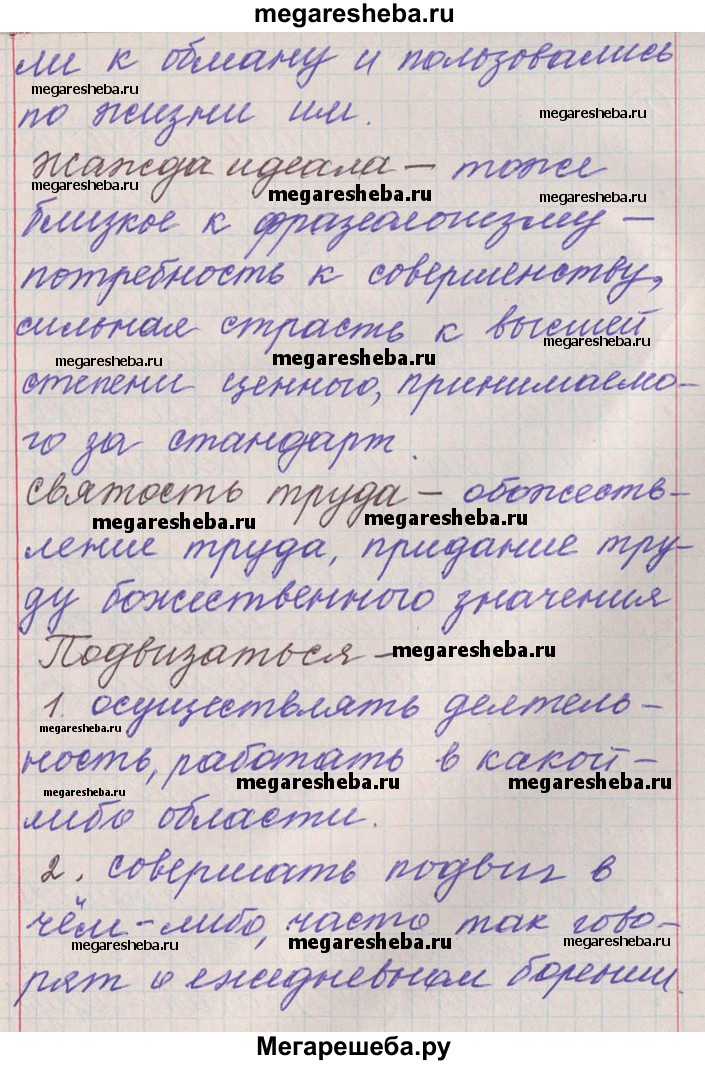 megaresheba.ru
ли к обману и пользовались
megaresheba.ru
megaresheba.ru
по жизни им.
Жажда идеала — тоже
megaresheba.ru
megaresheba.ru
megaresheba.ru
близкое к фразеологизму —
потребность к совершенству,
сильная страсть к высшей
megaresheba.ru
megaresheba.ru
megaresheba.ru
степени ценного, принимаемо-
го за стандарт.
святость труда — обожеств-
megaresheba.ru
megaresheba.ru
ление труда, придание тру-
ду божественного значения
Подвизаться —
megaresheba.ru
1. осуществлять деятель-
megaresheba.ru
ность, работать в какой-
megaresheba.ru
megaresheba.ru
megaresheba.ru
либо области.
2. совершать подвиг в
чём-либо, часто так гово-
megaresheba.ru
megaresheba.ru
megaresheba.ru
рят о ежедневном борении.
Мегарешеба.ру